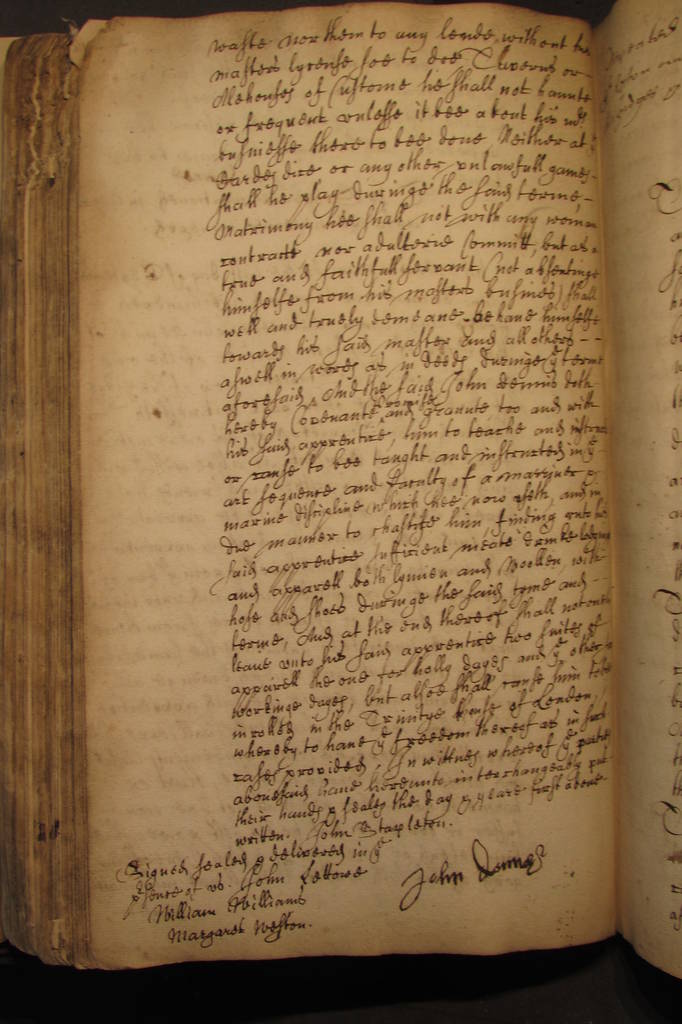 waste nor them to any lende, without his
masters lycense soe to doe, Taverns or
Alehouses of Custome he shall not haunte
or frequent unlesse it bee about his mrs
business there to bee done, Neither at ye
Cardes dice or any other unlawfull games
shall he play duringe the said terme
Matrimony hee shall not with any woman
contract nor adulterie Committ, but as a
true and faithfull servant (not absentinge
himselfe from his masters busines) shall
well and truely demeane behave himselfe
towards his said master and all others
aswell in words as in deeds Duringe ye terme
aforesaid, And the said John Dennis doth
hereby Covenante promise and graunte too and with
his said apprentice, him to teache and instruct
or cause to bee taught and instructed in ye
art sequence and faculty of a marriner &
marine discipline which hee now useth, and in
due manner to chastise him finding unto his
said apprentice sufficient meate drinke lodging
and apparell both lynnen and Woollen, with
hose and shoes duringe the said tyme and
terme, And at the end thereof shall not onely
leave unto his said apprentice two suites of
apparell the one for holly dayes and ye other for
workinge dayes, but allsoe shall cause him to be
inrolled in the Trinitye house of London,
whereby to have ye freedom thereof as in such
cases provided, In wittnes whereof ye parties
abovesaid have hereunto interchangeably put
their hands & seales the day & yeare first above
written. John Stapleton.
Signed sealed & delivered in ye
psence of us. John Lettowe
William Williams
Margaret Weston.
John Dennis